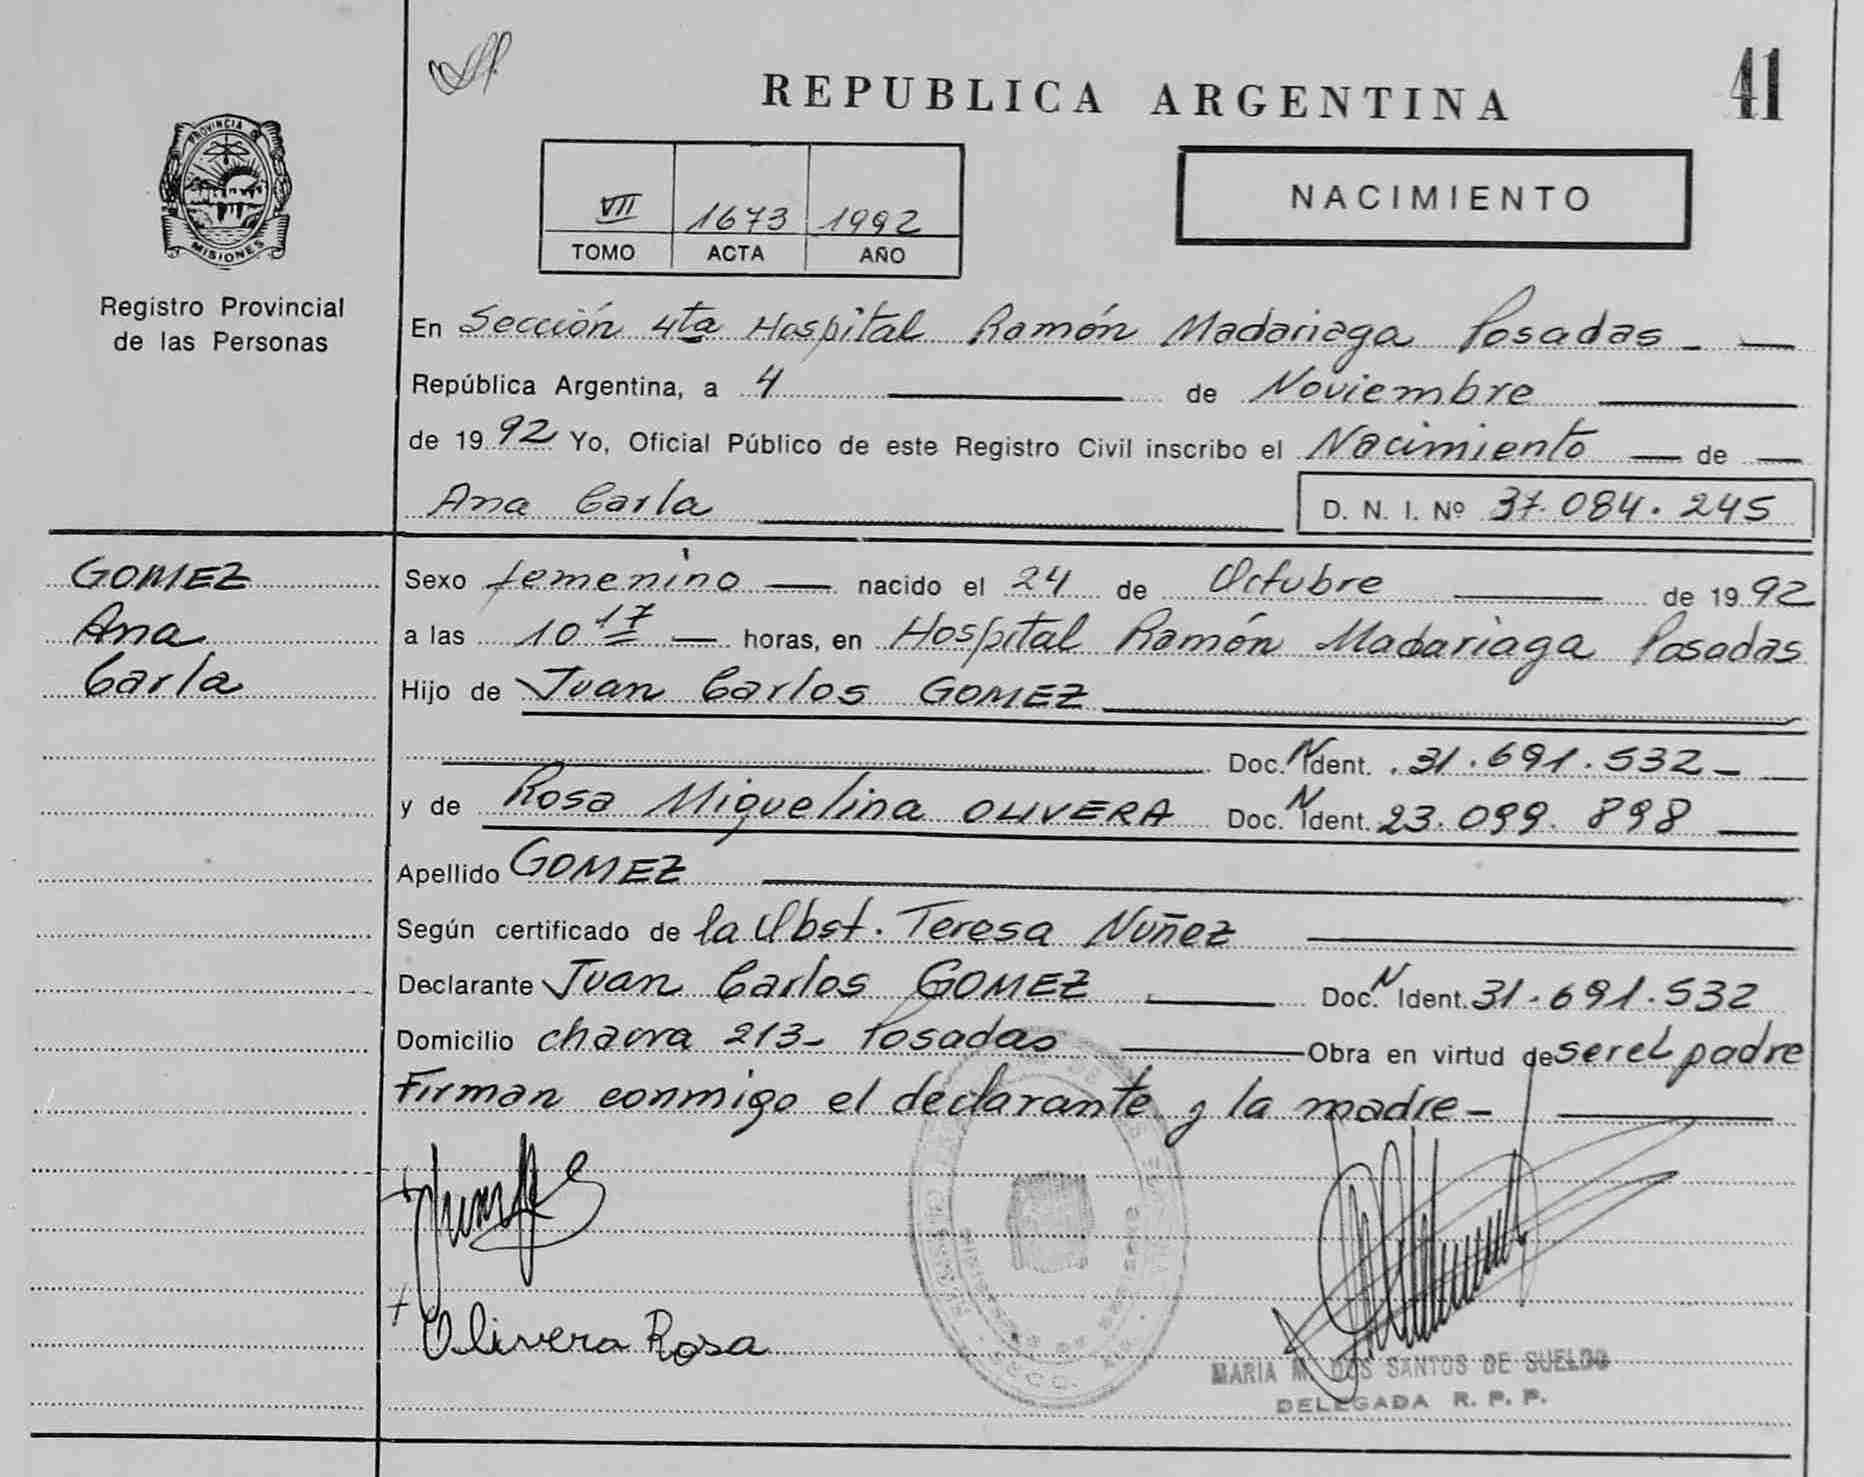 41
REPUBLICA ARGENTINA
PROVINCIA DE
MISIONES
Registro Provincial
de las Personas
VII 1673 1992
TOMO ACTA AÑO
NACIMIENTO
En Sección 4ta Hospital Ramón Madariaga Posadas
República Argentina, a 4 de Noviembre
de 1992 Yo, Oficial Público de este Registro Civil inscribo el Nacimiento de
Ana Carla D. N. I. Nº 37.084.245
GOMEZ
Ana
Carla
Sexo femenino nacido el 24 de Octubre de 1992
a las 10 17 horas, en Hospital Ramón Madariaga Posadas
Hijo de Juan Carlos GOMEZ
Doc. N Ident. 31.691.532
y de Rosa Miguelina OLIVERA Doc. N Ident. 23.099.898
Apellido GOMEZ
Según certificado de la Obst. Teresa Nuñez
Declarante Juan Carlos GOMEZ Doc. N Ident. 31.691.532
Domicilio chacra 213- Posadas Obra en virtud de ser el padre
Firman conmigo el declarante y la madre-
Olivera Rosa
MARIA M. DOS SANTOS DE SUELDO
DELEGADA R. P. P.